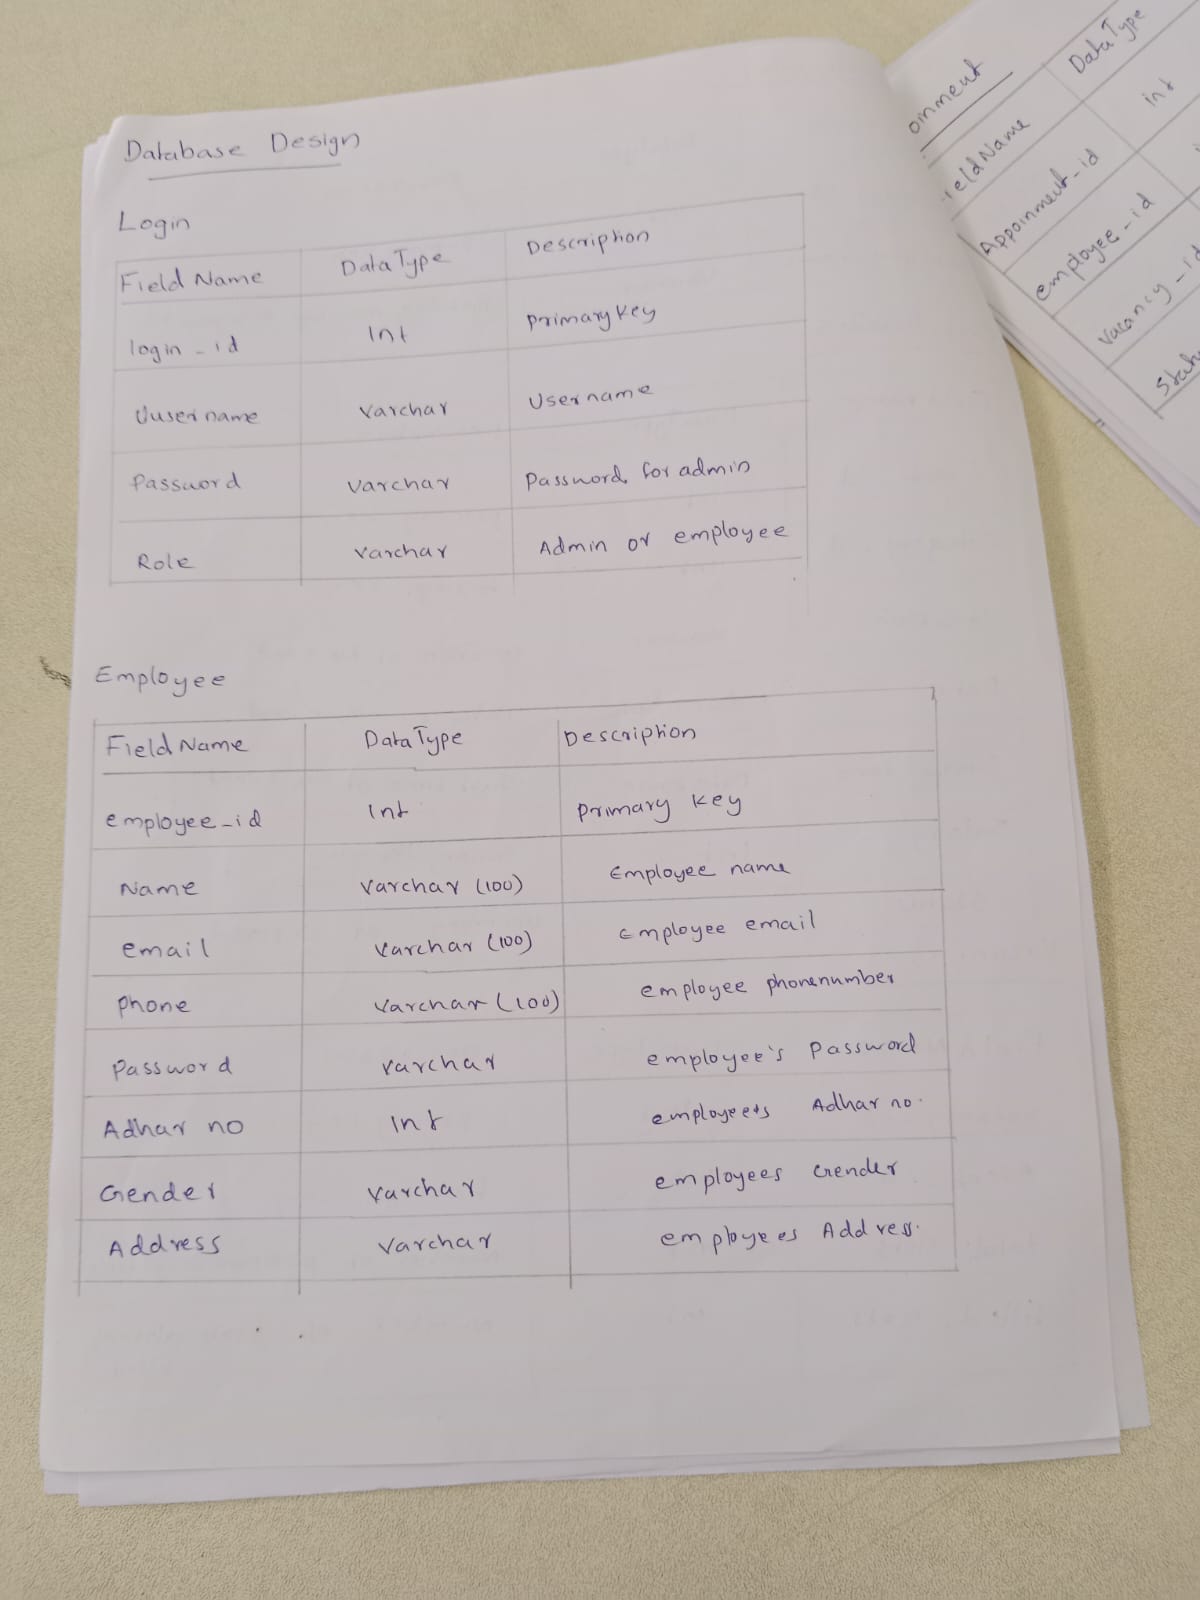 Database Design
Login
Field Name DataType Description
login_id Int primary key
Uusername varchar Username
Password varchar Password for admin
Role varchar Admin or employee
Employee
Field Name DataType Description
employee_id Int primary key
Name varchar (100) Employee name
email varchar (100) Employee email
phone varchar (100) employee phonenumber
Password varchar employee's Password
Adhar no Int employeets Adhar no.
Gender varchar employees Gender
Address varchar employees Address.
oinment
ieldName DataType
Appoinment_id int
employee_id
vacancy_id